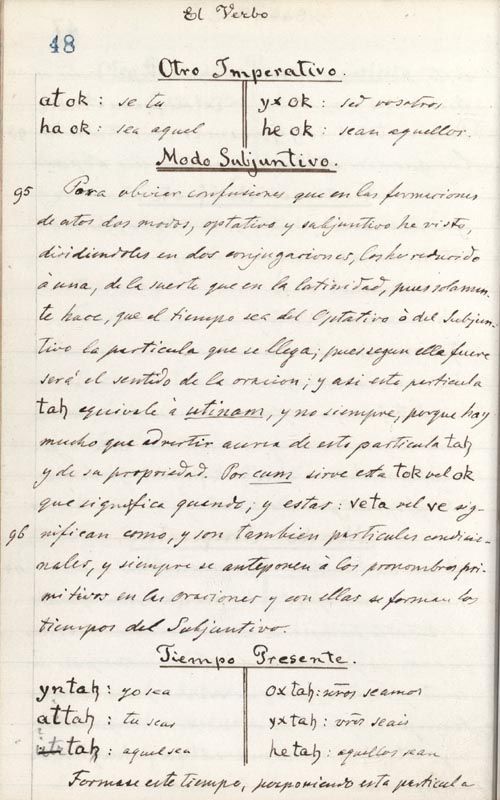 El Verbo
48
Otro Imperativo.
atok: se tu
yxok: sed vosotros
haok: sea aquel
heok: sean aquellos.
Modo Subjuntivo.
95 Para obviar confusiones que en las formaciones
de estos dos modos, optativo y subjuntivo he visto,
dividiendoles en dos conjugaciones, los he reducido
à una, de la suerte que en la latinidad, pues solamen-
te hace, que el tiempo sea del Optativo ò del Subjun-
tivo la particula que se llega; pues segun ella fuere
será el sentido de la oracion; y asi esta particula
taḥ equivale à utinam, y no siempre, porque hay
mucho que advertir acerca de esta particula taḥ
y de su propriedad. Por cum sirve esta tok vel ok
que significa quando; y estas: veta vel ve sig-
96 nifican como, y son tambien particulas condicio-
nales, y siempre se anteponen à los pronombres pri-
mitivos en las oraciones y con ellas se forman los
tiempos del Subjuntivo.
Tiempo Presente.
yntaḥ: yo sea
oxtaḥ: nr̃os seamos
attaḥ: tu seas
yxtaḥ: vr̃os seais
taḥ: aquel sea
hetaḥ: aquellos sean
Formase este tiempo, posponiendo esta particula